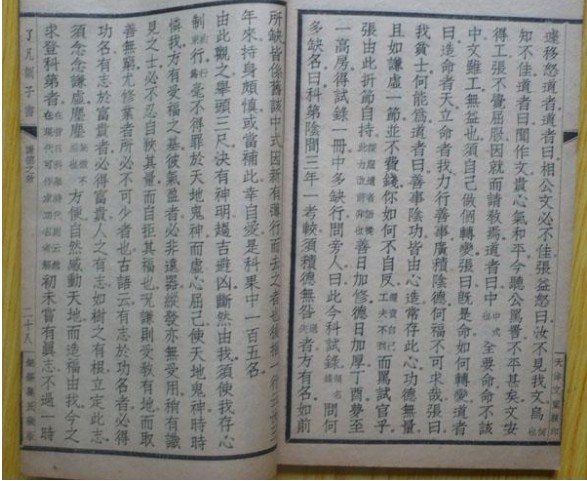 遽移怒道者道者曰相公文必不佳張益怒曰汝不見我文烏何也
知不佳道者曰聞作文貴心氣和平今聽公罵詈不平甚矣文安
得工張不覺屈服因就而請教焉道者曰中中式也全要命命不該
中文雖工無益也須自己做個轉變張曰既是命如何轉變道者
曰造命者天立命者我力行善事廣積陰德何福不可求哉張曰
我貧士何能爲道者曰善事陰功皆由心造常存此心功德無量
且如謙虛一節並不費錢你如何不自反責自己工夫不到而罵試官乎
張由此折節自持善日加修德日加厚丁酉夢至
一高房得試錄一冊中多缺行問旁人曰此今科試錄問何
多缺名曰科第陰間三年一考較須積德無咎過失者方有名如前
所缺皆係舊該中式因新有薄行而去之者也後指一行云汝三
年來持身頗慎或當補此幸自愛是科果中一百五名
由此觀之舉頭三尺決有神明趨吉避凶斷然由我須使我存心
制行毫不得罪於天地鬼神而虛心屈己使天地鬼神時時
憐我方有受福之基彼氣盈者必非遠器縱發亦無受用稍有識
見之士必不忍自狹其量而自拒其福也況謙則受教有地而取
善無窮尤修業者所必不可少者也古語云有志於功名者必得
功名有志於富貴者必得富貴人之有志如樹之有根立定此志
須念念謙虛塵塵方便自然感動天地而造福由我今之
求登科第者初未嘗有眞志不過一時
了凡訓子書
謙德之效
二十八